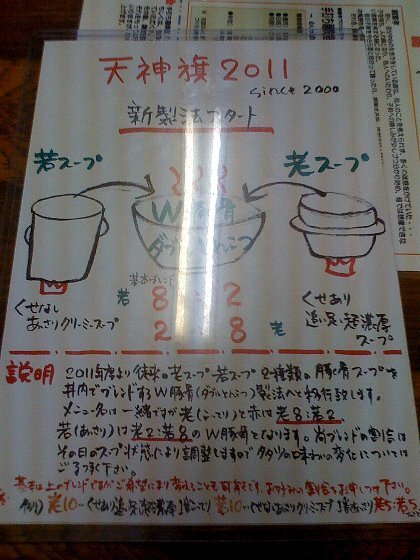 天神旗2011
since 2000
新製法スタート
若スープ
老スープ
W豚骨
ダブルとんこつ
基本ブレンド
若 8 : 2
2 : 8 老
くせなし
あっさりクリーミースープ
くせあり
追足・超濃厚
スープ
説明
2011年度より従来の老スープ・若スープの2種類の豚骨スープを
丼内でブレンドするW豚骨(ダブルとんこつ)製法へと移行致します。
メニュー名は一緒ですが老(こってり)と赤は老8:若2
若(あっさり)は老2:若8のW豚骨となります。尚ブレンドの割合は
その日のスープ状態により調整しますのでタダリの味わいの変化については
ご了承下さい。
基本は上のブレンドですがご希望により変えることも可能です。お好みの割合をお申しつけ下さい。
例) 老10…くせあり 若10…くせなしあっさりクリーミースープ